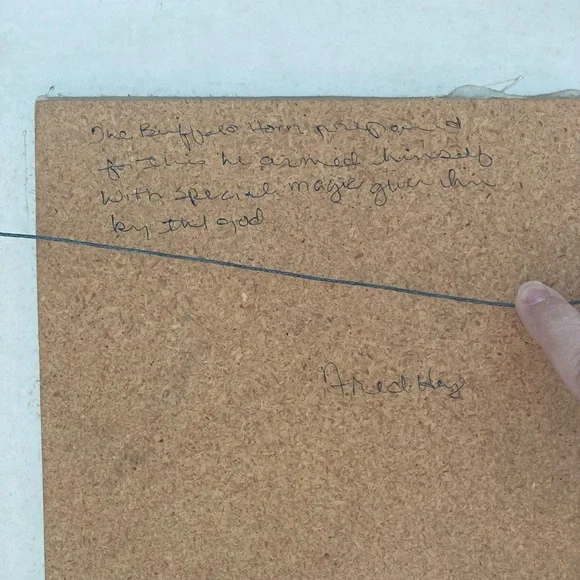 The Buffalo Horn prepared
for this he armed himself
with special magic given him
by the god
Fred Hag